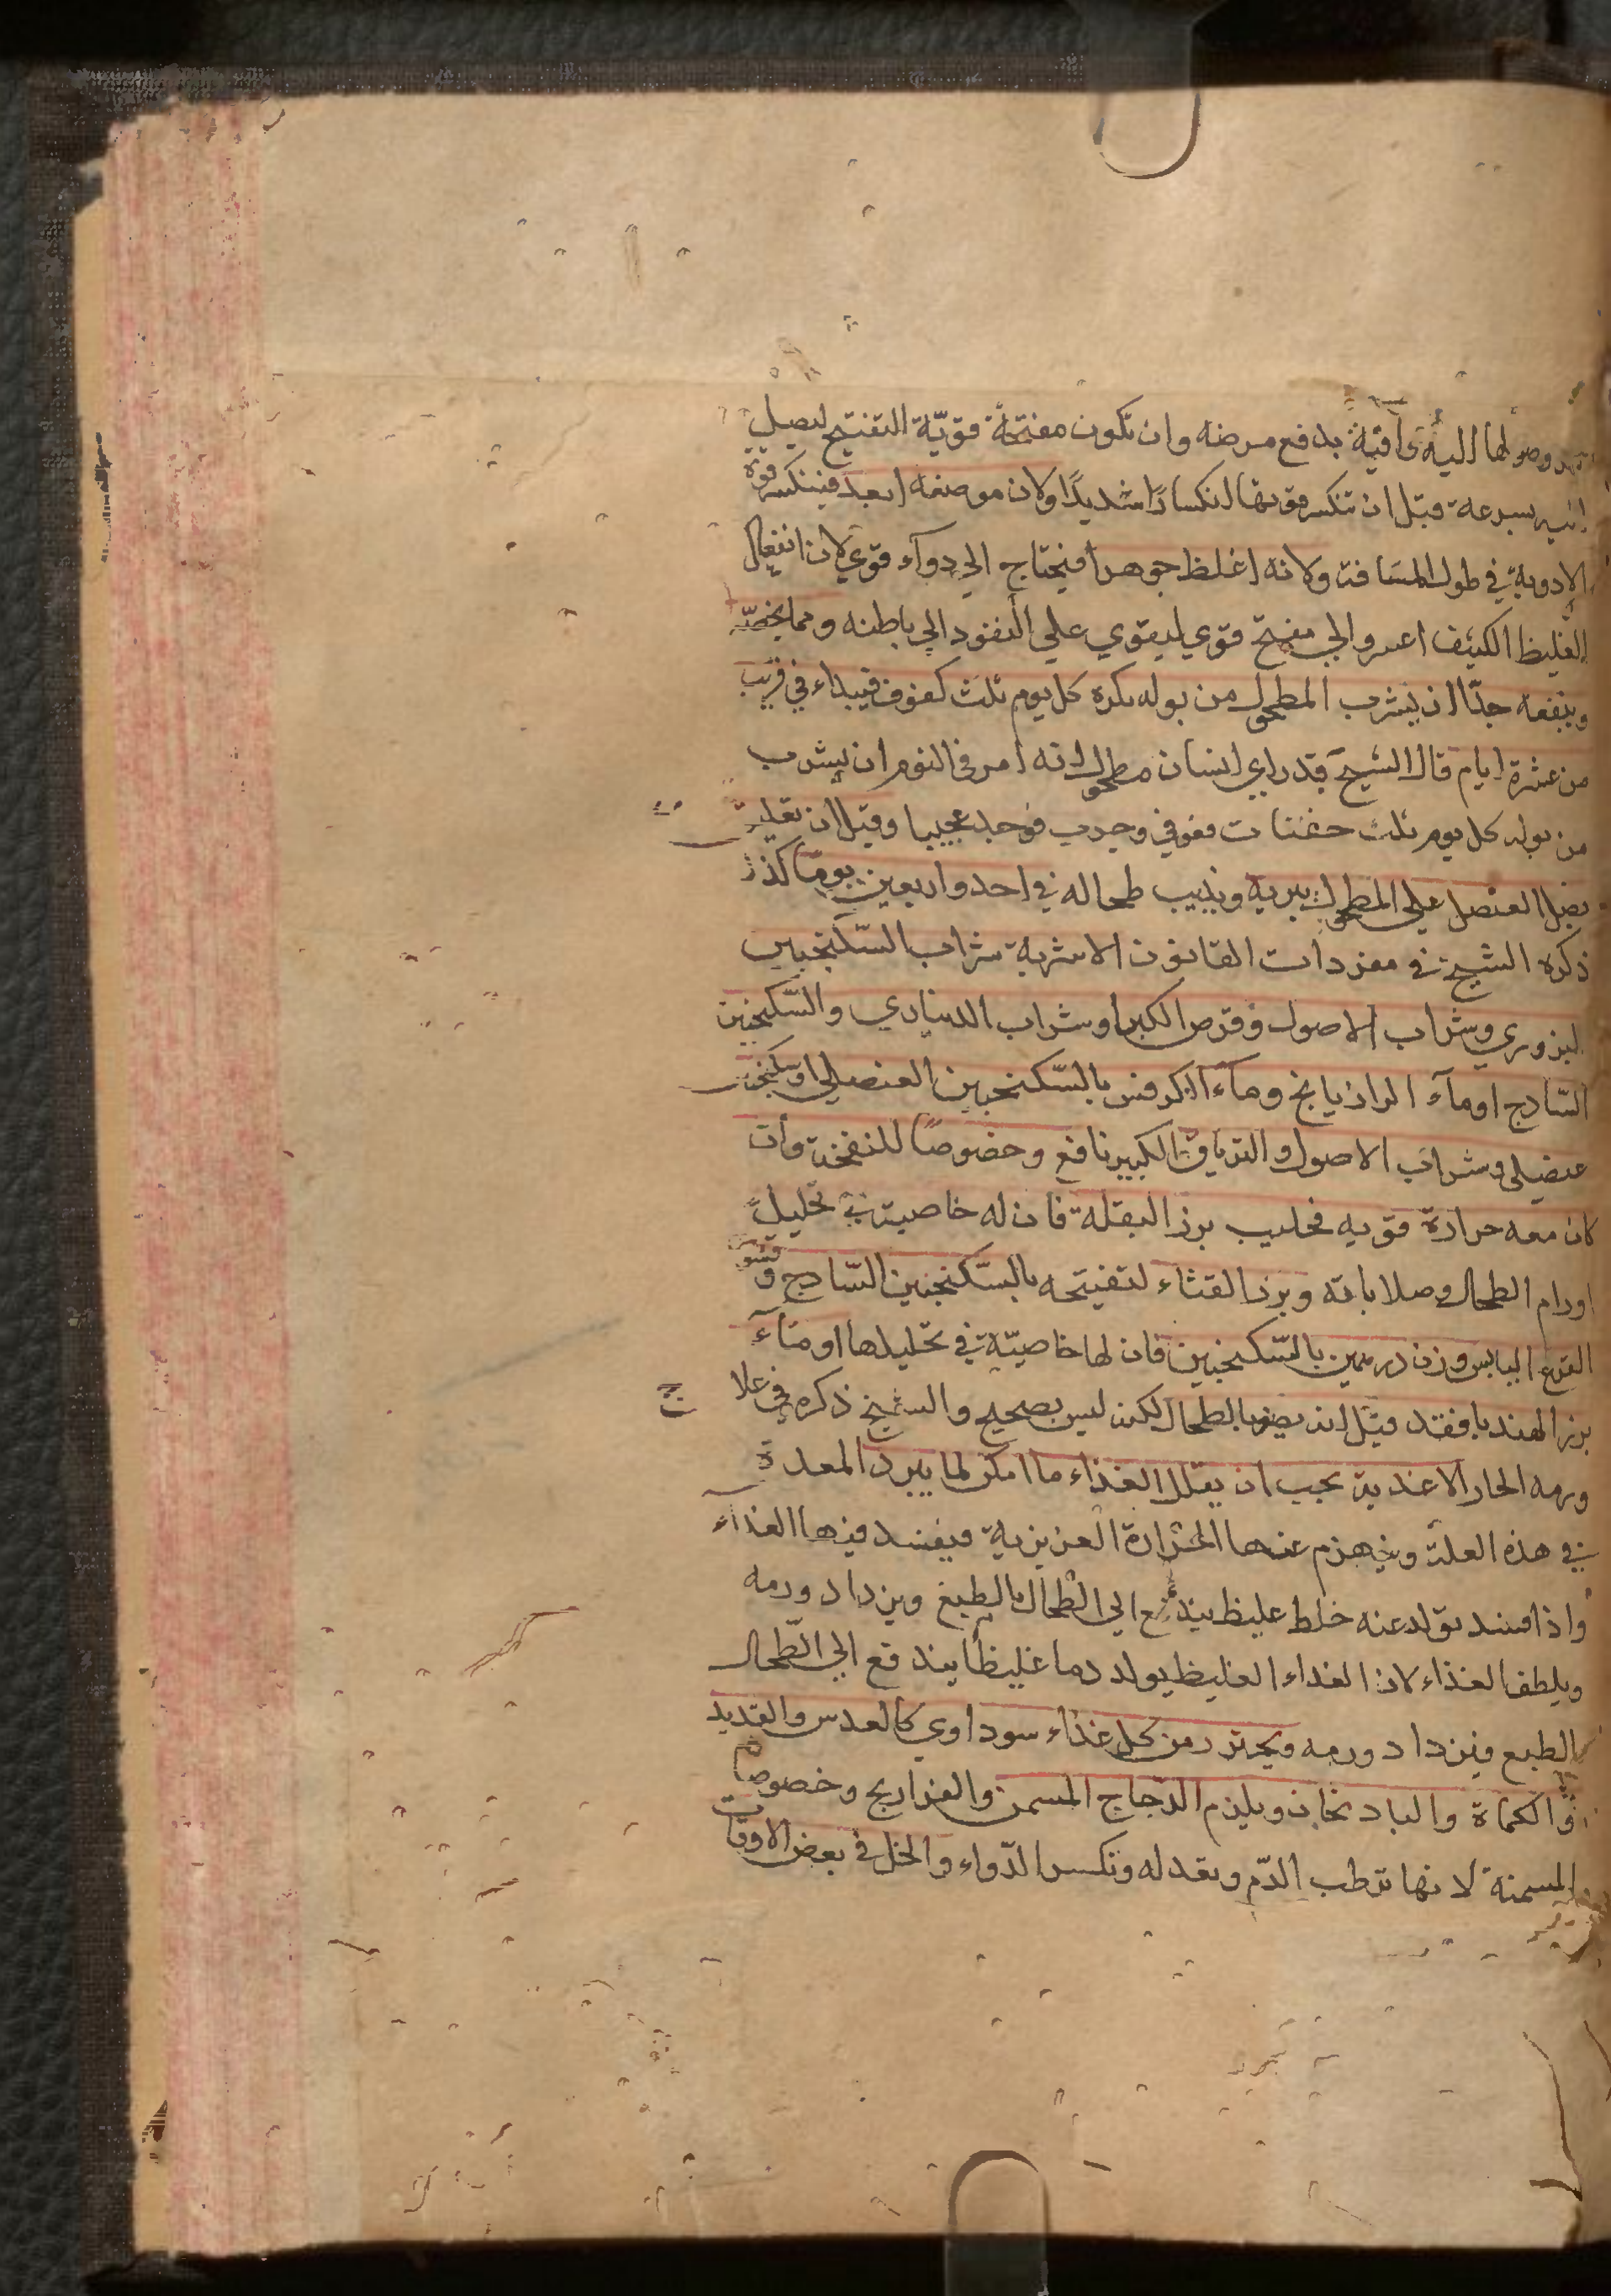 وصولها اليه وافية بدفع مرضه وان تكون مفتحة قويّة التفتيح ليصل
اليه بسرعة قبل ان تنكسر قوتها انكسارًا شديدًا ولان موضعه ابعد فينكسر قوة
الادوية في طول المسافة ولانه اغلظ جوهرا فيحتاج الي دوآء قوي لان انفعال
الغليظ الكثيف اعسر والي مفتح قوي ليقوي علي النفود الي باطنه ومما يخصّه
وينفعه جدّا ان يشرب المطحول من بوله بكرة كل يوم ثلث كفوف فيبراء في قريب
من عشرة ايام قال الشيخ قد راي انسان مطحول انه امر في النوم ان يشرب
من بوله كل يوم ثلث حفنات فعوفي وجرب فوجد عجيبا وقيل ان تعليق
بصل العنصل علي المطحول يبريه ويذيب طحاله في احد واربعين يومًا كذا
ذكره الشيخ في مفردات القانون الاشربة شراب السّكنجبين
البزوري وشراب الاصول وقرص الكبر او شراب الديناري والسّكنجبين
السّادج او مآء الرازيانج ومآء الكرفس بالسّكنجبين العنصلي او سكنجبين
عنصلي وشراب الاصول والترياق الكبير نافع وخصوصًا للنفخة وأن
كان معه حرارة قويه فحليب بزر البقلة فان له خاصية في تحليل
اورام الطحال وصلاباته وبزر القثاء لتفتيحه بالسّكنجبين السّادج وقشور
القرع اليابس وزن درهمين بالسّكنجبين فان لها خاصيّة في تحليلها او مآء
بزر الهندبا فقد قيل انه يضر بالطحال لكن ليس بصحيح والشيخ ذكره في علاج
ورمه الحار الاغدية يجب ان يقلل الغذاء ما امكن لما يبرد المعدة
في هذه العلة وينهزم عنها الحرارة الغريزية فيفسد فيها الغذآء
واذا فسد تولد عنه خلط غليظ يندفع الي الطحال بالطبع ويزداد ورمه
ويلطف الغذاء لان الغداء الغليظ يولد دما غليظا يندفع الي الطّحال
بالطبع فيزداد ورمه ويحترز من كل غذاء سوداوي كالعدس والقديد
والكماة والبادنجان ويلزم الدّجاج المسمن والفراريج وخصوصا
المسمنة لانها ترطب الدّم وتعدله وتكسر الدّواء والخل في بعض الاوقات